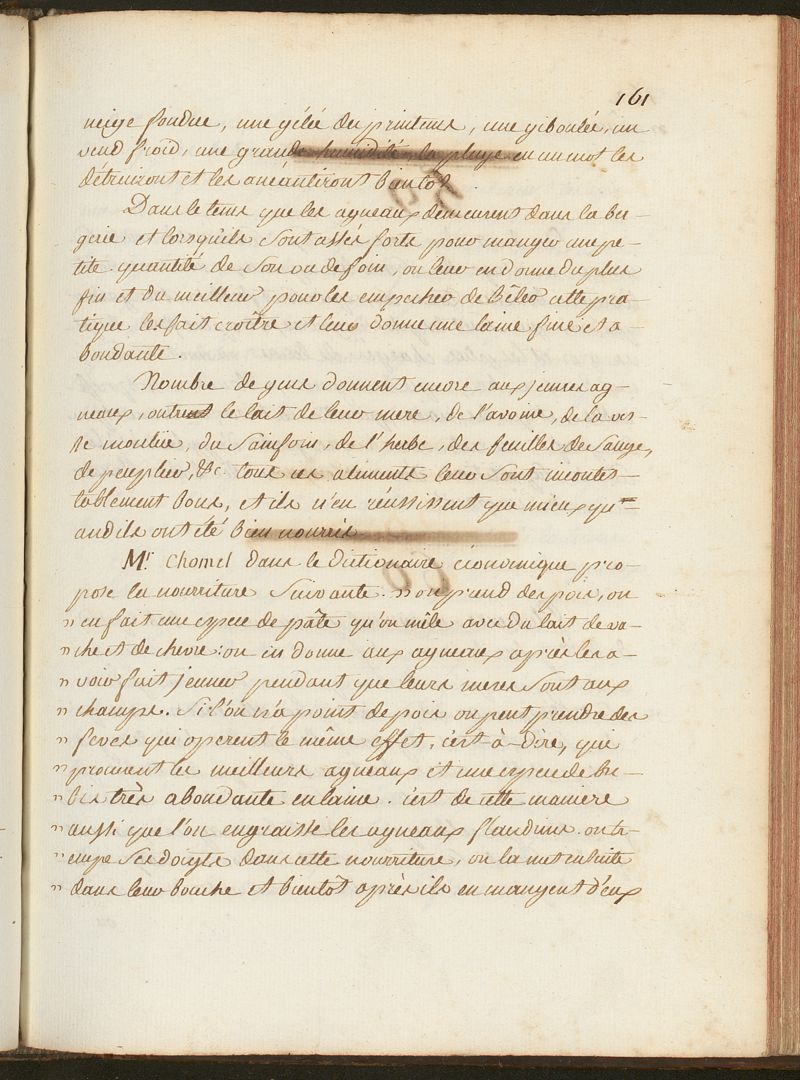 161
neige fondue, une gélée du printems, une giboulée, un
vend froid, une grande humidité, la pluye en un mot les
détruiront et les anéantiront bientôt
Dans le tems que les agneaux demeurent dans la ber-
gerie et lorsqu'ils sont assés forts pour manger une pe-
tite quantité de son ou de foin, on leur en donne du plus
fin et du meilleur pour les empecher de Bêler cette pra-
tique les fait croître et leur donne une laine fine et a-
bondante.
Nombre de gens donnent encore aux jeunes ag-
neaux, outre le lait de leur mere, de l'avoine, de la ves-
se moulue, du Sainfoin, de l'herbe, des feuilles de Sauge,
de peuplier, &c. tous ces aliments leur sont incontes-
tablement bons, et ils n'en réussissent que mieux qu-
and ils ont été bien nourris
Mr. Chomel dans le Dictionaire économique pro-
pose la nourriture suivante. " on prend des pois, on
" en fait une espece de pâte qu'on mêle avec du lait de va-
" che et de chevre: on en donne aux agneaux après les a-
" voir fait jeuner pendant que leurs meres sont aux
" champs. Si l'on n'a point de pois on peut prendre des
" feves qui operent le même effet, c'est-à-Dire, qui
" procurent les meilleurs agneaux et une espece de bre-
" bis très abondante en laine. c'est de cette maniere
" aussi que l'on engraisse les agneaux flandrins. on tr-
" empe ses doigts dans cette nourriture, on la met ensuite
" dans leur bouche et bientôt après ils en mangent d'eux